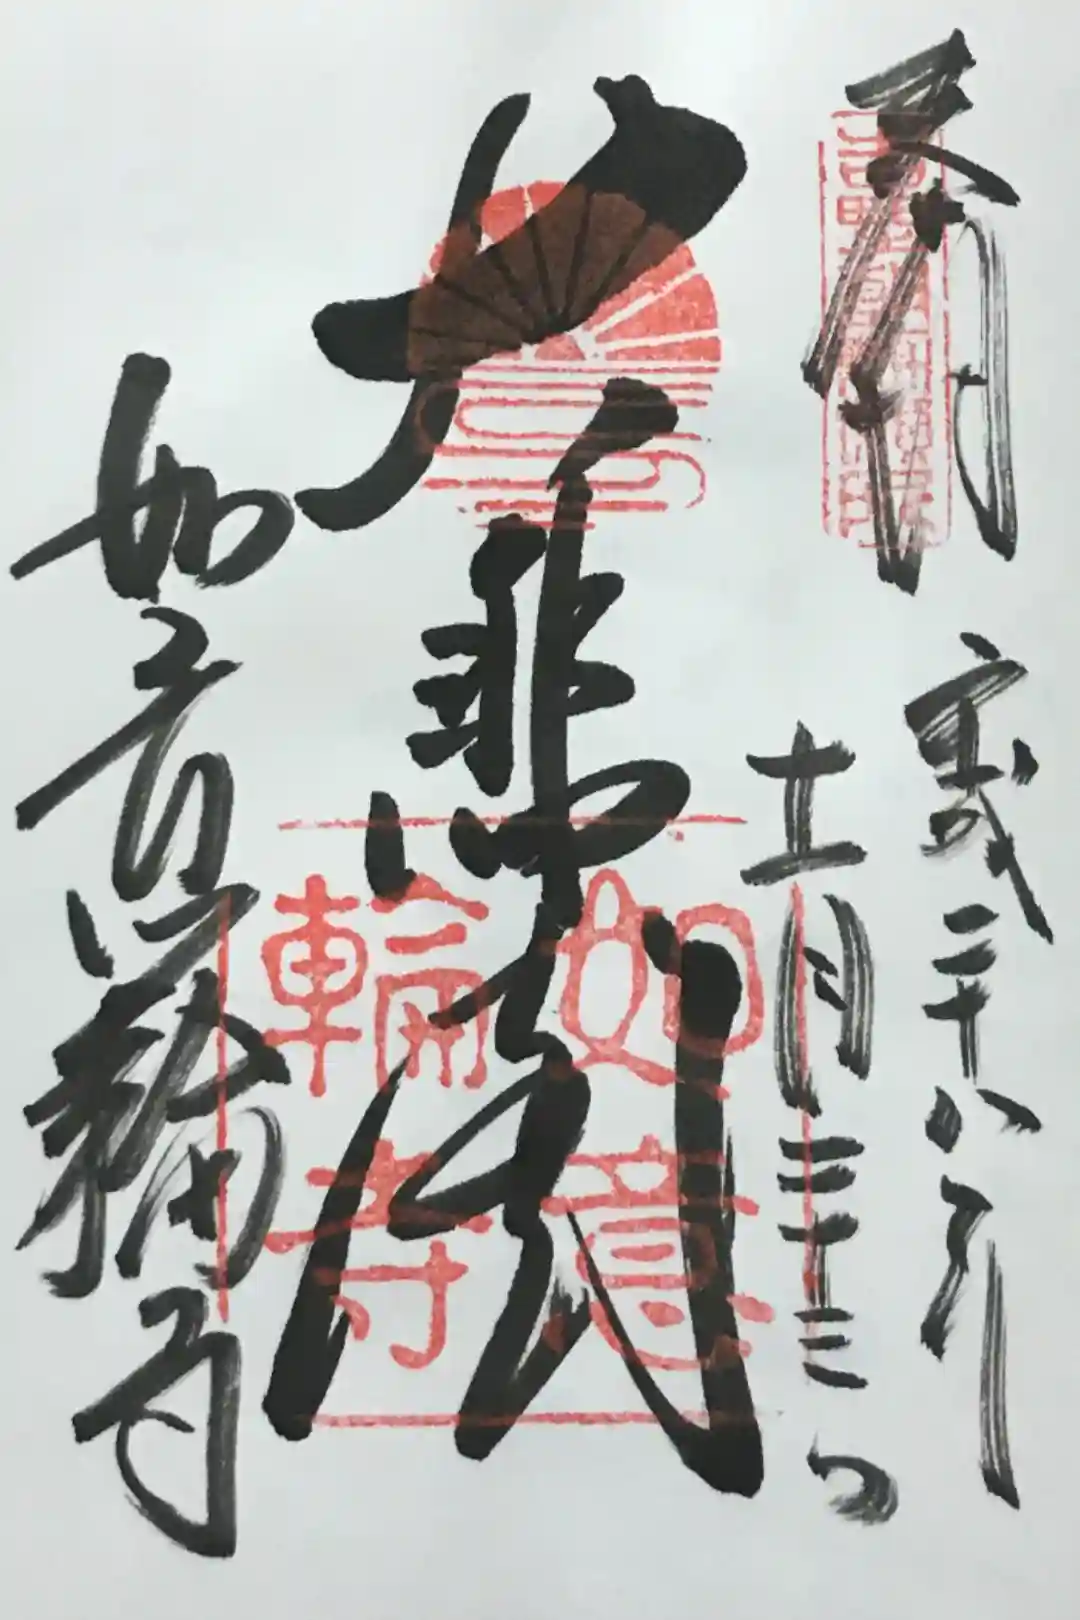 奉拝
平成二十八年
十一月二十三日
大悲殿
如意輪寺
如意輪寺